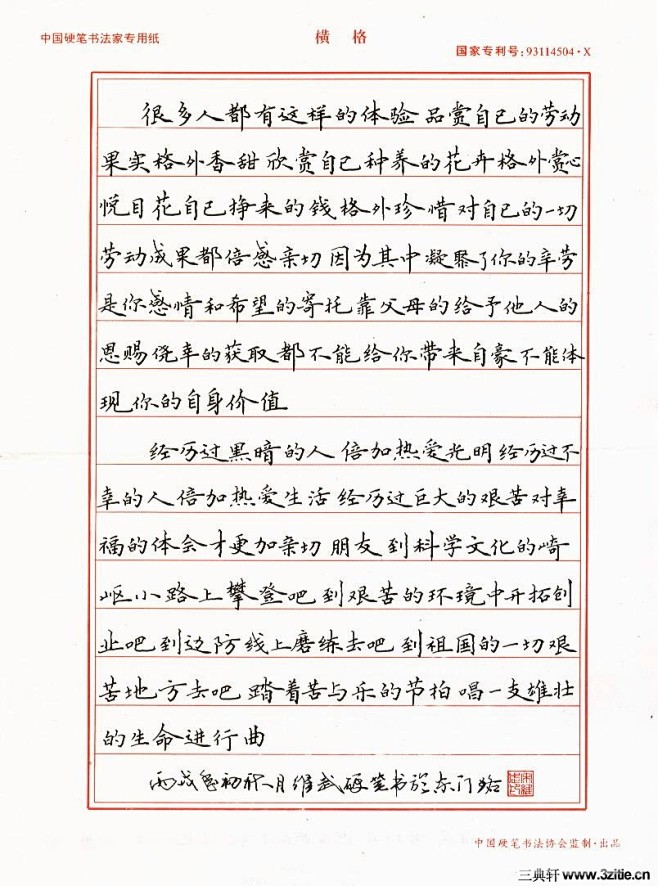 中国硬笔书法家专用纸
横 格
国家专利号:93114504·X
很多人都有这样的体验 品赏自己的劳动
果实格外香甜 欣赏自己种养的花卉格外赏心
悦目 花自己挣来的钱格外珍惜 对自己的一切
劳动成果都倍感亲切 因为其中凝聚了你的辛劳
是你感情和希望的寄托 靠父母的给予他人的
恩赐 侥幸的获取都不能给你带来自豪 不能体
现你的自身价值
经历过黑暗的人 倍加热爱光明 经历过不
幸的人倍加热爱生活 经历过巨大的艰苦对幸
福的体会才更加亲切 朋友 到科学文化的崎
岖小路上攀登吧 到艰苦的环境中开拓创
业吧 到边防线上磨练去吧 到祖国的一切艰
苦地方去吧 踏着苦与乐的节拍 唱一支雄壮
的生命进行曲
丙戌初秋月维武硬笔书于东门
中国硬笔书法协会监制·出品
三典轩 www.3ztie.cn